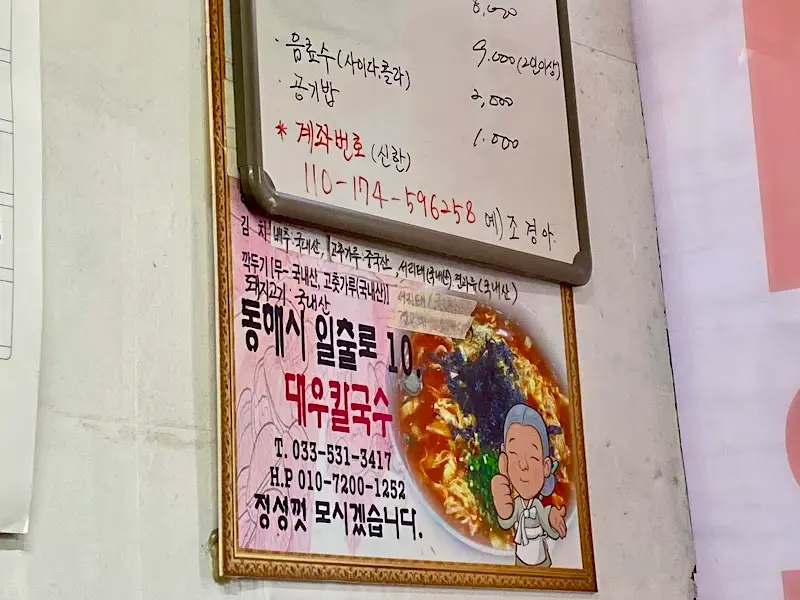 8,000
· 음료수 (사이다,콜라) 9.000 (2인이상)
· 공기밥 2,000
1.000
* 계좌번호 (신한)
110-174-596258 예) 조경아.
김치[배추:국내산, 고춧가루·중국산, 서리태(국내산)
깍두기[무-국내산, 고춧가루(국내산)]
돼지고기: 국내산
동해시 일출로 10.
대우칼국수
T. 033-531-3417
H.P 010-7200-1252
정성껏 모시겠습니다.